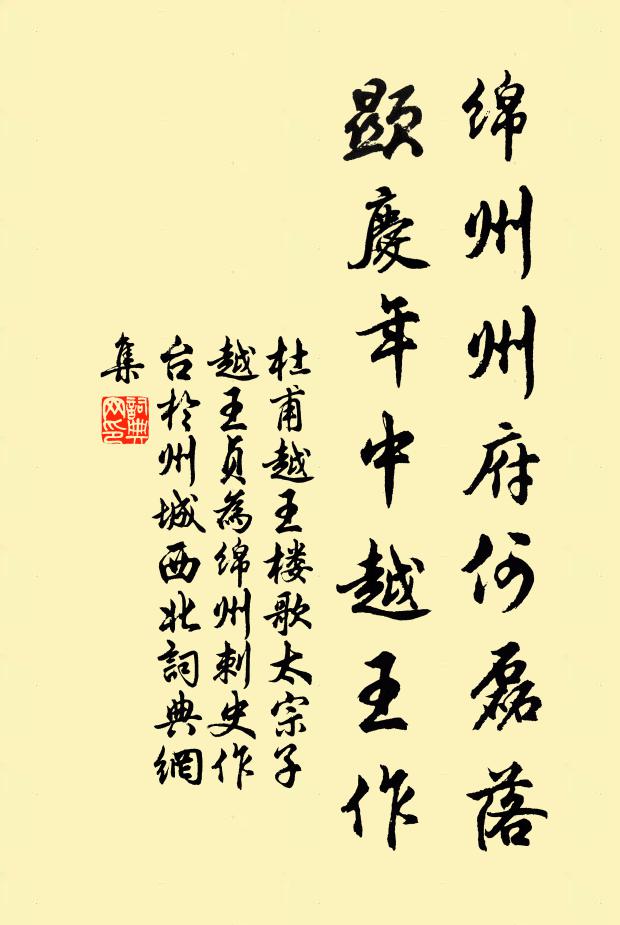 绵州州府何磊落
顕慶年中越王作
杜甫越王楼歌太宗子
越王贞為绵州刺史作
台於州城西北詞典網
集
詞典
网印